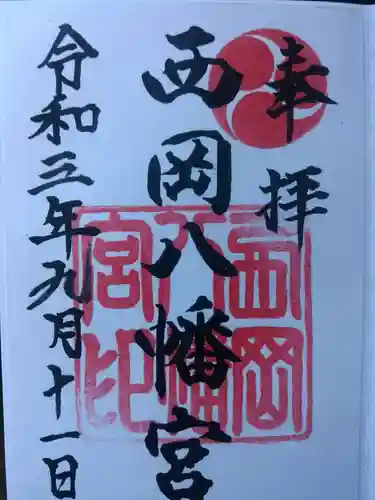 奉拝
西岡八幡宮
令和三年九月十一日
西岡
八幡
宮印